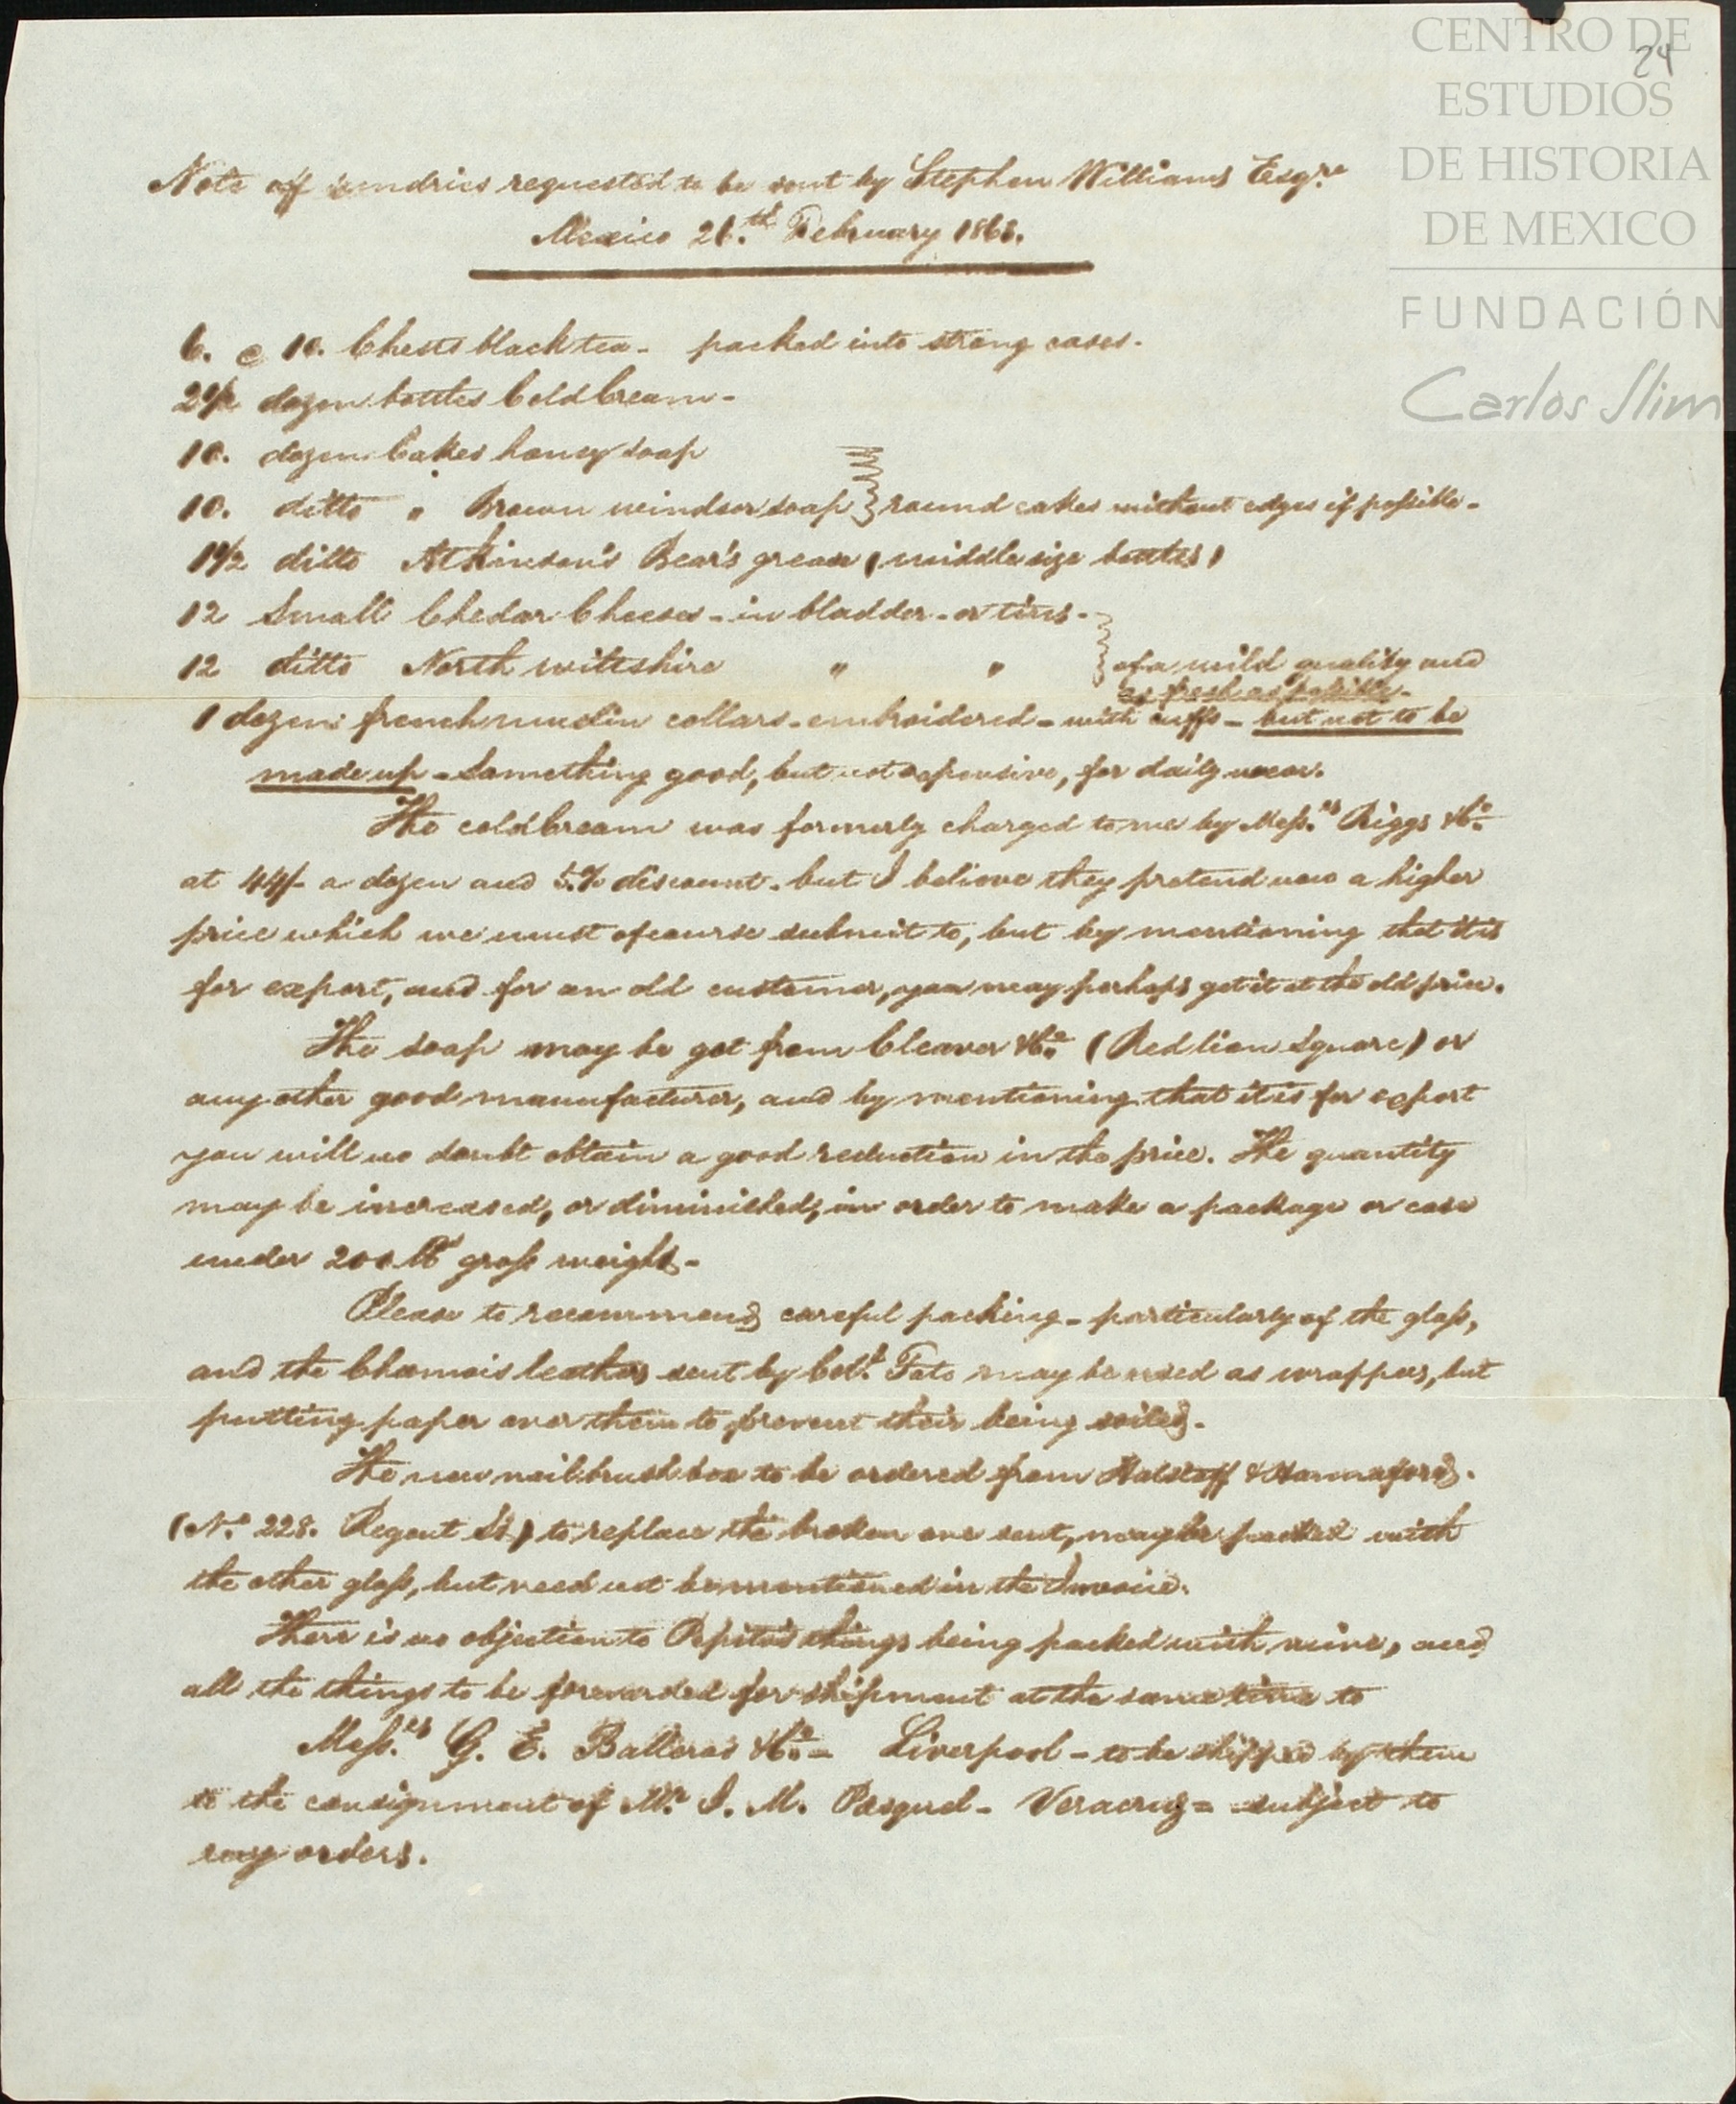 CENTRO DE
ESTUDIOS
DE HISTORIA
DE MEXICO
FUNDACIÓN
Carlos Slim
24
Note of sundries requested to be sent by Stephen Williams Esqre
Mexico 28.th February 1868.
6. a 10. Chests black tea - packed into strong cases.
2 1/2 dozen bottles Cold Cream -
10. dozen Cakes honey soap
10. ditto " Brown windsor soap } round cakes without edges if possible -
1 1/2 ditto Atkinson's Bear's grease (middle size bottles)
12 Small Chedar Cheeses - in bladder - or tins -
12 ditto North wiltshire " " } of a mild quality and
as fresh as possible -
1 dozen french muslin collars - embroidered - with cuffs - but not to be
made up - Something good, but not expensive, for daily wear.
The cold Cream was formerly charged to me by Mess.rs Riggs & Co
at 44/- a dozen and 5.% discount - but I believe they pretend now a higher
price which we must of course submit to, but by mentioning that it is
for export, and for an old customer, you may perhaps get it at the old price.
The soap may be got from Cleaver & Co. (Red lion Square) or
any other good manufacturer, and by mentioning that it is for export
you will no doubt obtain a good reduction in the price. The quantity
may be increased, or diminished, in order to make a package or case
under 200 lbs gross weight -
Please to recommend careful packing - particularly of the glass,
and the Chamois leathers sent by Col.l Tato may be used as wrappers, but
putting paper over them to prevent their being soiled.
The new nailbrush box to be ordered from Halstaff & Hannaford.
(No. 228. Regent St.) to replace the broken one sent, may be packed with
the other glass, but need not be mentioned in the Invoice.
There is no objection to Pepito's things being packed with mine, and
all the things to be forwarded for shipment at the same time to
Mess.rs G. E. Balleras & Co. - Liverpool - to be shipped by them
to the consignment of Mr. J. M. Pasquel - Veracruz - subject to
my orders.